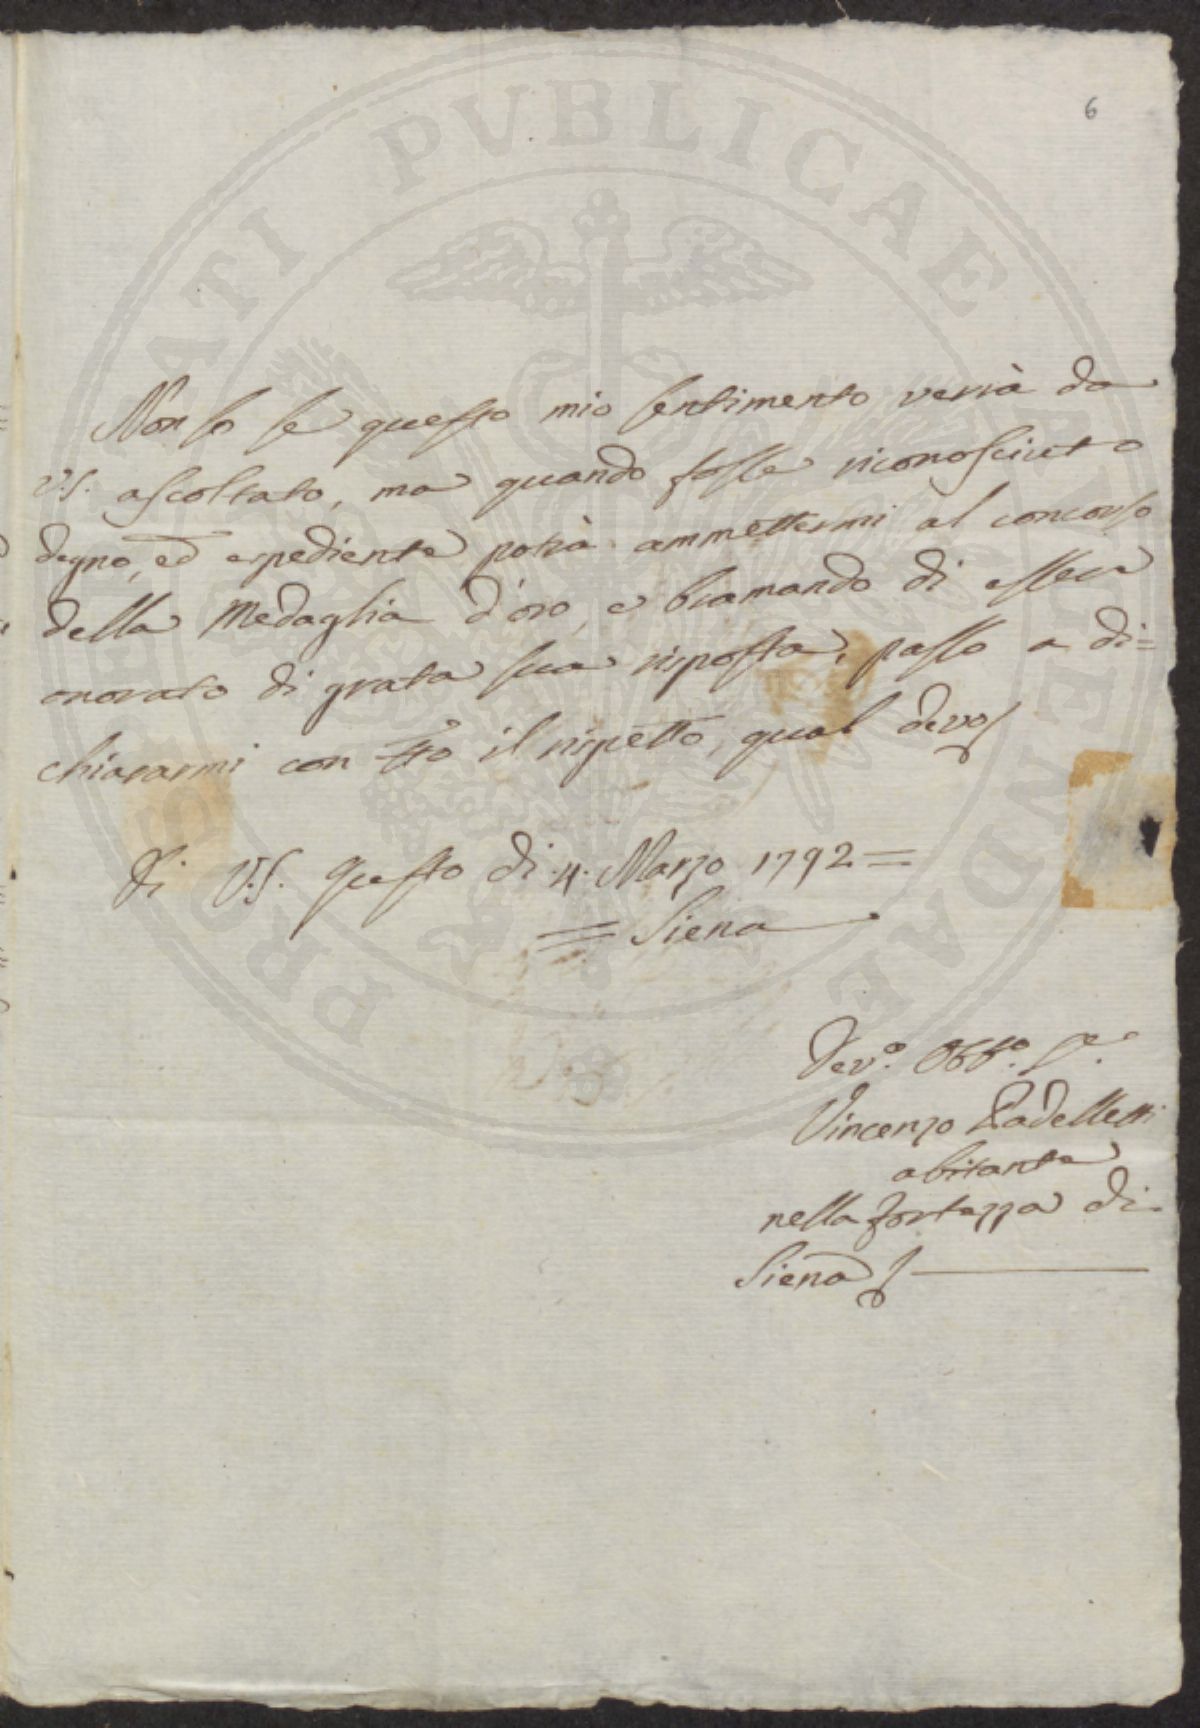 6
Non so se questo mio sentimento verrà da
V.S. ascoltato, ma quando fosse riconosciuto
degno, ed espediente potrà ammettermi al concorso
della Medaglia d'oro, e bramando di essere
onorato di grata sua risposta, passo a di=
chiararmi con tto il rispetto, qual devo
Di V.S. Questo dì 4. Marzo 1792=
= Siena
Dev.o Obb.o S.e
Vincenzo Padelletti
abitante
nella fortezza di
Siena
PROSPERITATI PUBLICAE AVGENDAE